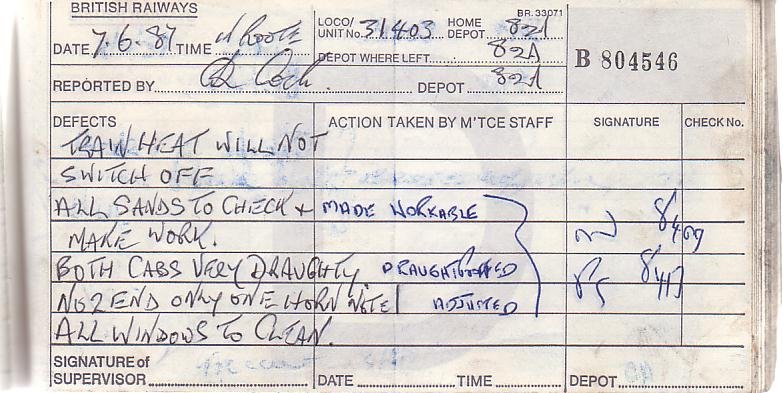 BRITISH RAIWAYS
BR. 33071
DATE 7.6.87 TIME
LOCO/ UNIT No. 31403 HOME DEPOT 82A
DEPOT WHERE LEFT 82A
B 804546
REPORTED BY DEPOT 82A
DEFECTS ACTION TAKEN BY M'TCE STAFF SIGNATURE CHECK No.
TRAIN HEAT WILL NOT
SWITCH OFF
ALL SANDS TO CHECK + MADE WORKABLE
MAKE WORK.
BOTH CABS VERY DRAUGHTY. DRAUGHTPROOFED
NO2 END ONLY ONE HORN NOTE ADJUSTED
ALL WINDOWS TO CLEAN.
SIGNATURE of
SUPERVISOR DATE TIME DEPOT